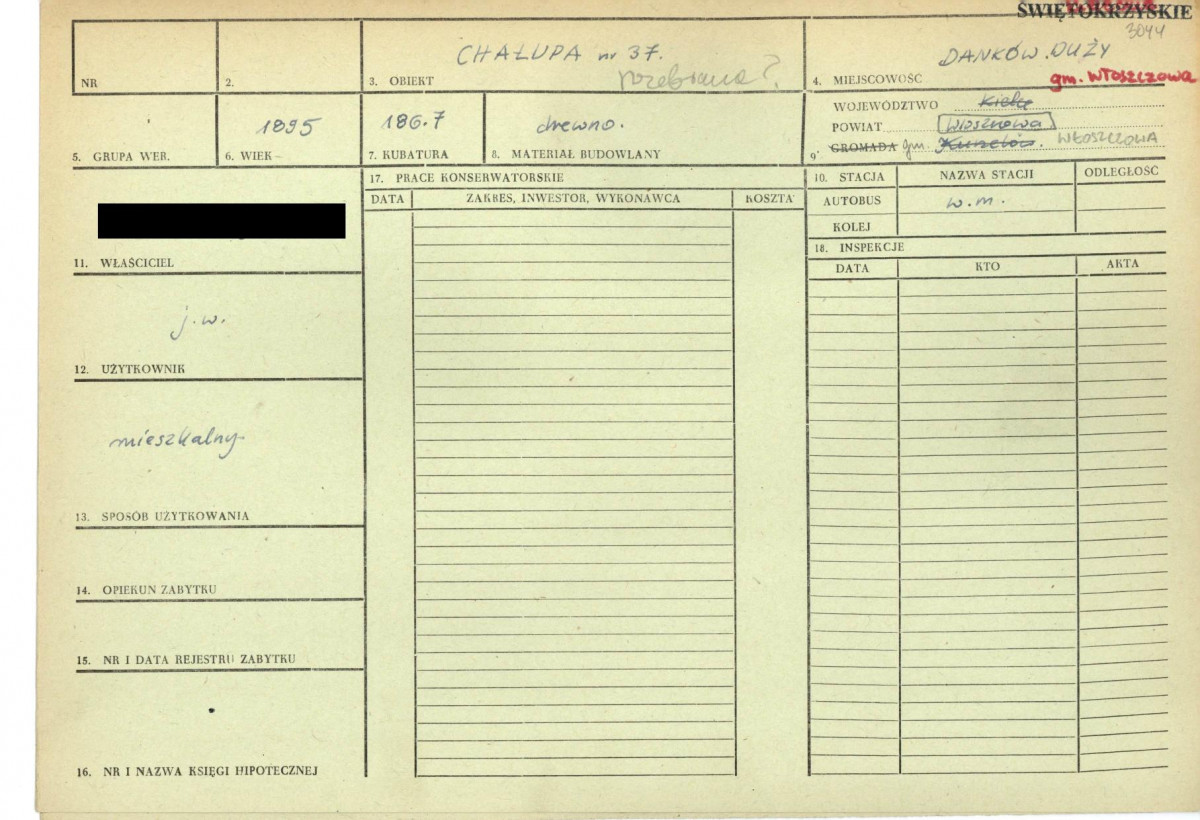 ŚWIĘTOKRZYSKIE
3044
NR
2.
CHAŁUPA nr 37.
rozebrana?
3. OBIEKT
DANKÓW DUŻY
4. MIEJSCOWOŚĆ
gm. WŁOSZCZOWA
5. GRUPA WER.
1895
6. WIEK
186.7
7. KUBATURA
drewno.
8. MATERIAŁ BUDOWLANY
WOJEWÓDZTWO Kielce
POWIAT Włoszczowa
9. GROMADA gm. Kurzelów. WŁOSZCZOWA
11. WŁAŚCICIEL
j.w.
12. UŻYTKOWNIK
mieszkalny
13. SPOSÓB UŻYTKOWANIA
14. OPIEKUN ZABYTKU
15. NR I DATA REJESTRU ZABYTKU
16. NR I NAZWA KSIĘGI HIPOTECZNEJ
17. PRACE KONSERWATORSKIE
DATA ZAKRES, INWESTOR, WYKONAWCA KOSZTA
10. STACJA NAZWA STACJI ODLEGŁOŚĆ
AUTOBUS w.m.
KOLEJ
18. INSPEKCJE
DATA KTO AKTA